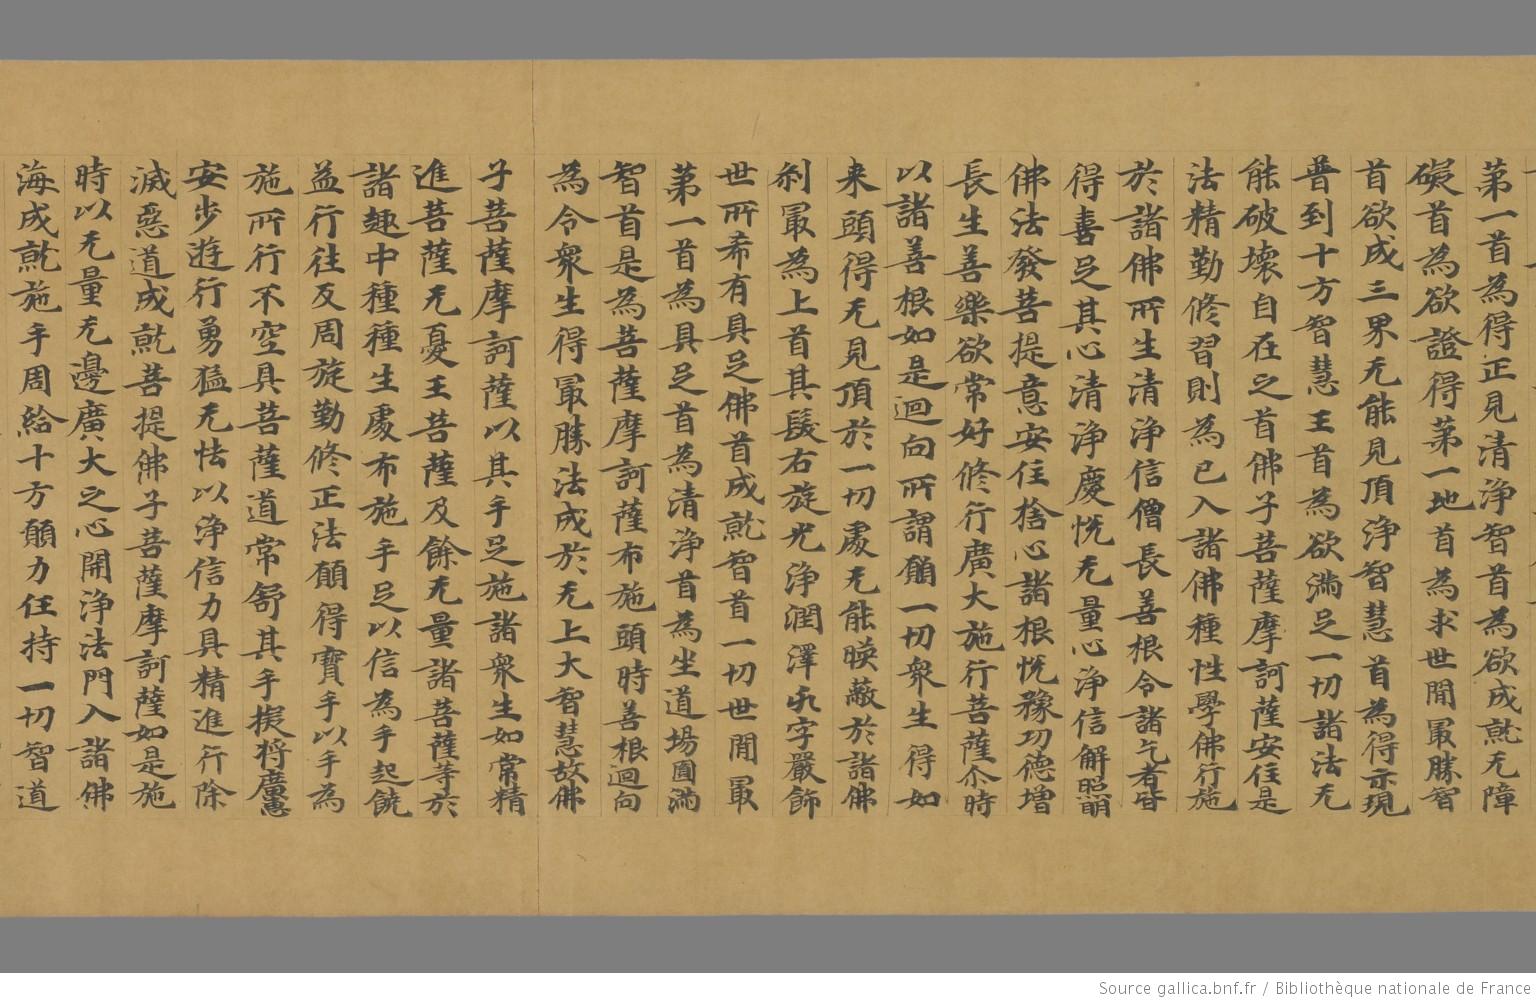 第一首為得正見清淨智首為欲成就无障
礙首為欲證得第一地首為求世間冣勝智
首欲成三界无能見頂淨智慧首為得示現
普到十方智慧王首為欲滿足一切諸法无
能破壞自在之首佛子菩薩摩訶薩安住是
法精勤修習則為已入諸佛種性學佛行施
於諸佛所生清淨信僧長善根令諸乞者皆
得喜足其心清淨慶恱无量心淨信解照明
佛法發菩提意安住捨心諸根恱豫功德增
長生善樂欲常好修行廣大施行菩薩尒時
以諸善根如是迴向所謂願一切衆生得如
来頭得无見頂於一切處无能暎蔽於諸佛
剎冣為上首其髮右旋光淨潤澤卐字嚴飾
世所希有具足佛首成就智首一切世間冣
第一首為具足首為清淨首為坐道場圓滿
智首是為菩薩摩訶薩布施頭時善根迴向
為令衆生得冣勝法成於无上大智慧故佛
子菩薩摩訶薩以其手足施諸衆生如常精
進菩薩无憂王菩薩及餘无量諸菩薩等於
諸趣中種種生處布施手足以信為手起饒
益行往反周旋勤修正法願得寶手以手為
施所行不空具菩薩道常舒其手擬將廣惠
安步遊行勇猛无怯以淨信力具精進行除
滅惡道成就菩提佛子菩薩摩訶薩如是施
時以无量无邊廣大之心開淨法門入諸佛
海成就施手周給十方願力任持一切智道